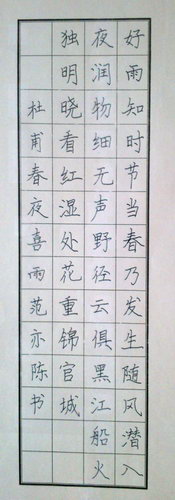 好雨知时节当春乃发生随风潜入
夜润物细无声野径云俱黑江船火
独明晓看红湿处花重锦官城
杜甫春夜喜雨范亦陈书